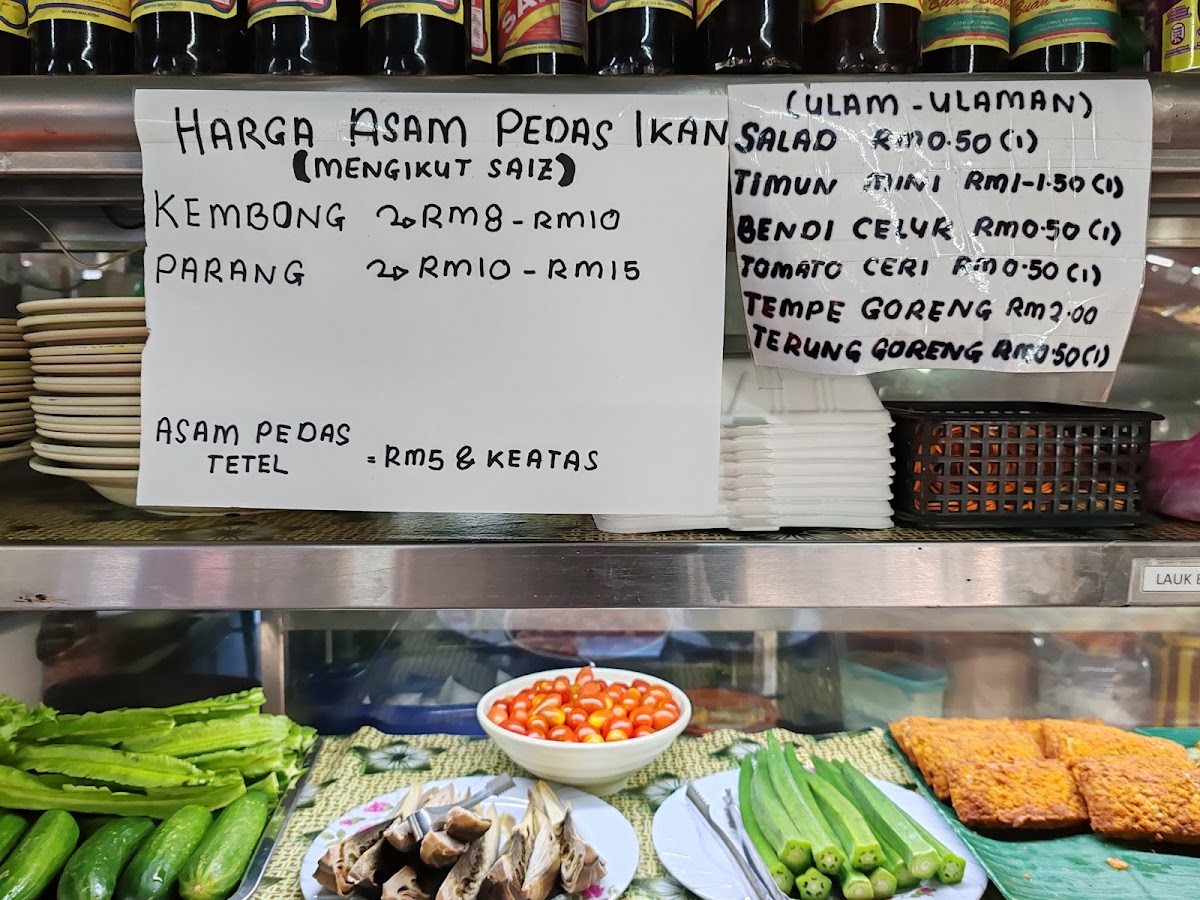 HARGA ASAM PEDAS IKAN
(MENGIKUT SAIZ)
KEMBONG RM8 - RM10
PARANG RM10 - RM15
ASAM PEDAS
TETEL = RM5 & KEATAS
(ULAM - ULAMAN)
SALAD RM0.50 (1)
TIMUN MINI RM1-1.50 (1)
BENDI CELUR RM0.50 (1)
TOMATO CERI RM0.50 (1)
TEMPE GORENG RM2.00
TERUNG GORENG RM0.50 (1)
LAUK